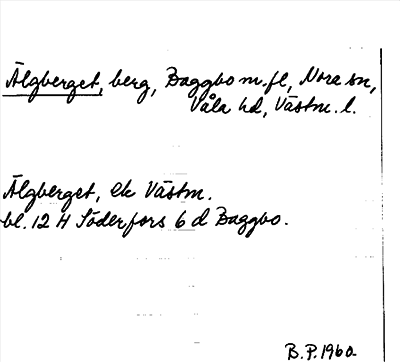 Älgberget, berg, Baggbo m.fl, Nora sn,
Våla hd, Västm. l.
Älgberget, ek Västm.
bl. 12 H Söderfors 6 d Baggbo.
B.P. 1960.